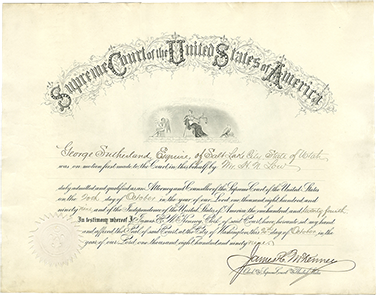 Supreme Court of the United States of America
George Sutherland, Esquire, of Salt Lake City State of Utah
was on motion first made to the Court in this behalf by Mr.
duly admitted and qualified as an Attorney and Counsellor of the Supreme Court of the United States
on the day of October in the year of our Lord one thousand eight hundred and
ninety and of the Independence of the United States of America the one hundred and twenty fourth
In testimony whereof I James H. McKenney, Clerk of said Court have hereunto set my hand
and affixed the Seal of said Court at the City of Washington this day of October in the
year of our Lord one thousand eight hundred and ninety
James H. McKenney
Clerk of the Supreme Court of the United States